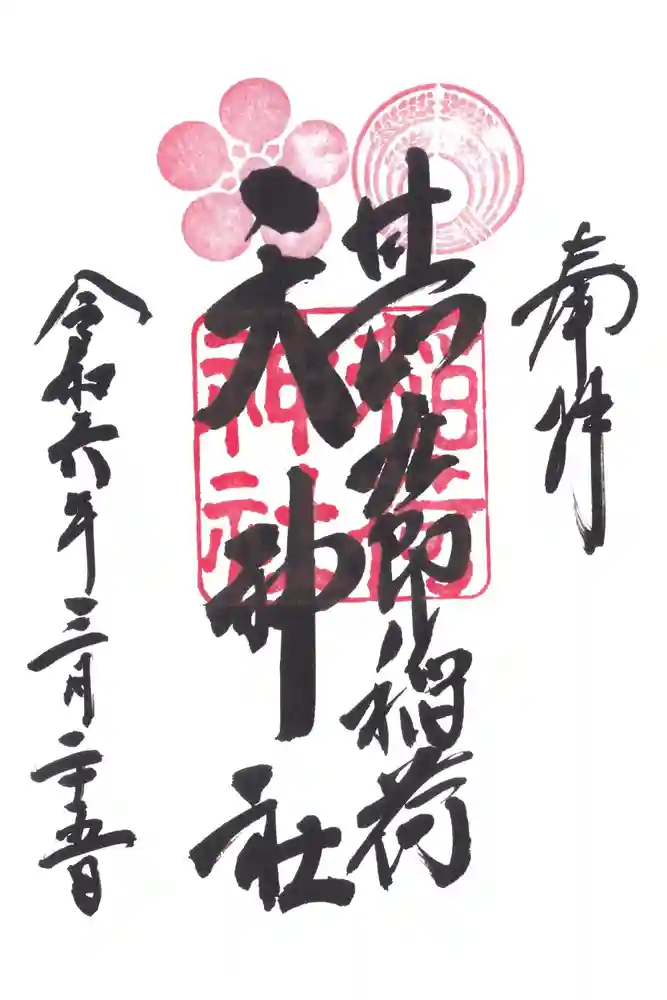 奉拝
甚九郎稲荷
天神社
稲荷
神社
令和六年三月二十五日